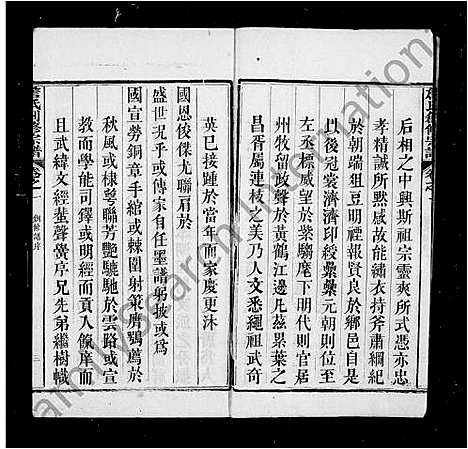 后相之中興斯祖宗靈爽所式憑亦忠
孝精誠所默感故能繡衣持斧肅綱紀
於朝端俎豆明禋報賢良於鄉邑自是
以後冠裳濟濟印綬纍纍元朝則位至
左丞標威望於紫騮麾下明代則官居
州牧留政聲於黃鶴江邊凡茲累葉之
昌胥屬連枝之美乃人文悉繩祖武奇
英已接踵於當年而家慶更沐
國恩俊傑尤聯肩於
盛世況乎或傳家自任墨譜躬披或爲
國宣勞銅章手綰或棘圍射策膺鶚薦於
秋風或棣萼聯芳艷驥馳於雲路或宣
教而學能司鐸或明經而貢入饩庠而
且武緯文經蜚聲黌序兄先弟繼樹幟
詹氏創修宗譜
卷之一
創修譜序
FamilySearch International